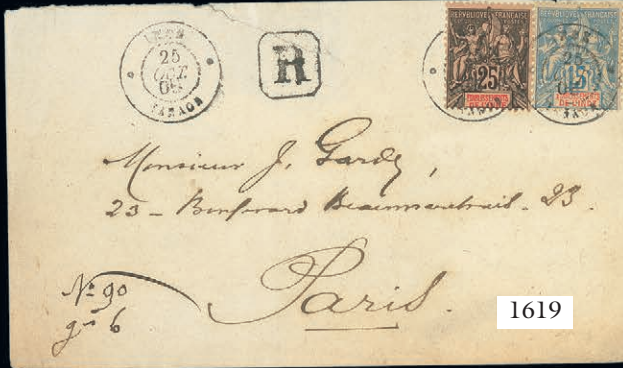 25
OCT
YANAON
R
REPUBLIQUE FRANCAISE
25
REPUBLIQUE FRANCAISE
25
YANAON
Monsieur J. Gardy,
23 - Boulevard Beaumarchais - 23.
Paris.
Nº 90
gr 6
1619